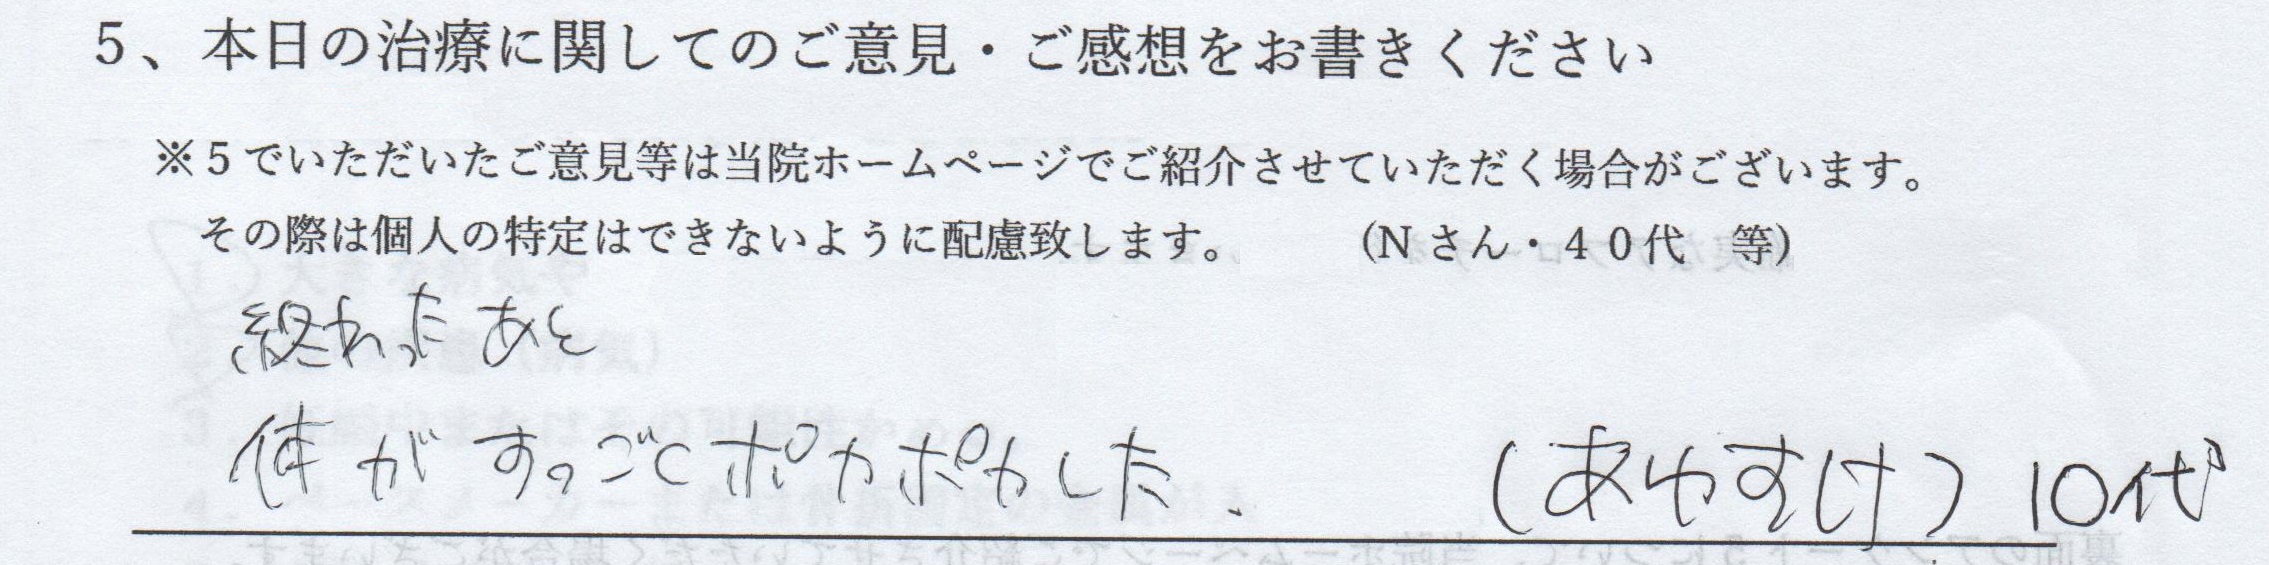 5、本日の治療に関してのご意見・ご感想をお書きください
※5でいただいたご意見等は当院ホームページでご紹介させていただく場合がございます。
その際は個人の特定はできないように配慮致します。 (Nさん・40代 等)
終わったあと
体がすっごくポカポカした. (あゆすけ) 10代